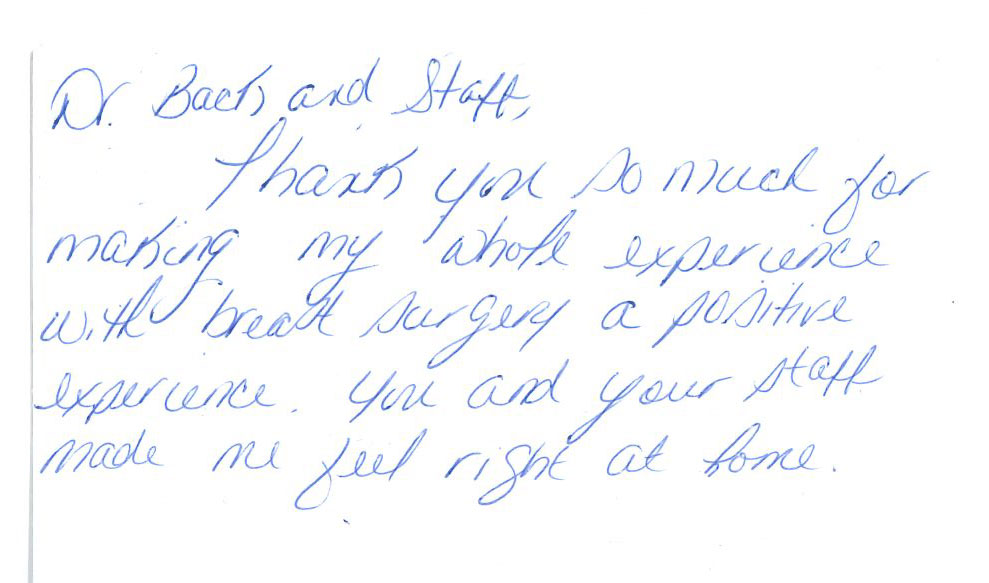 Dr. Back and Staff,
Thank you so much for
making my whole experience
with breast surgery a positive
experience. You and your staff
made me feel right at home.